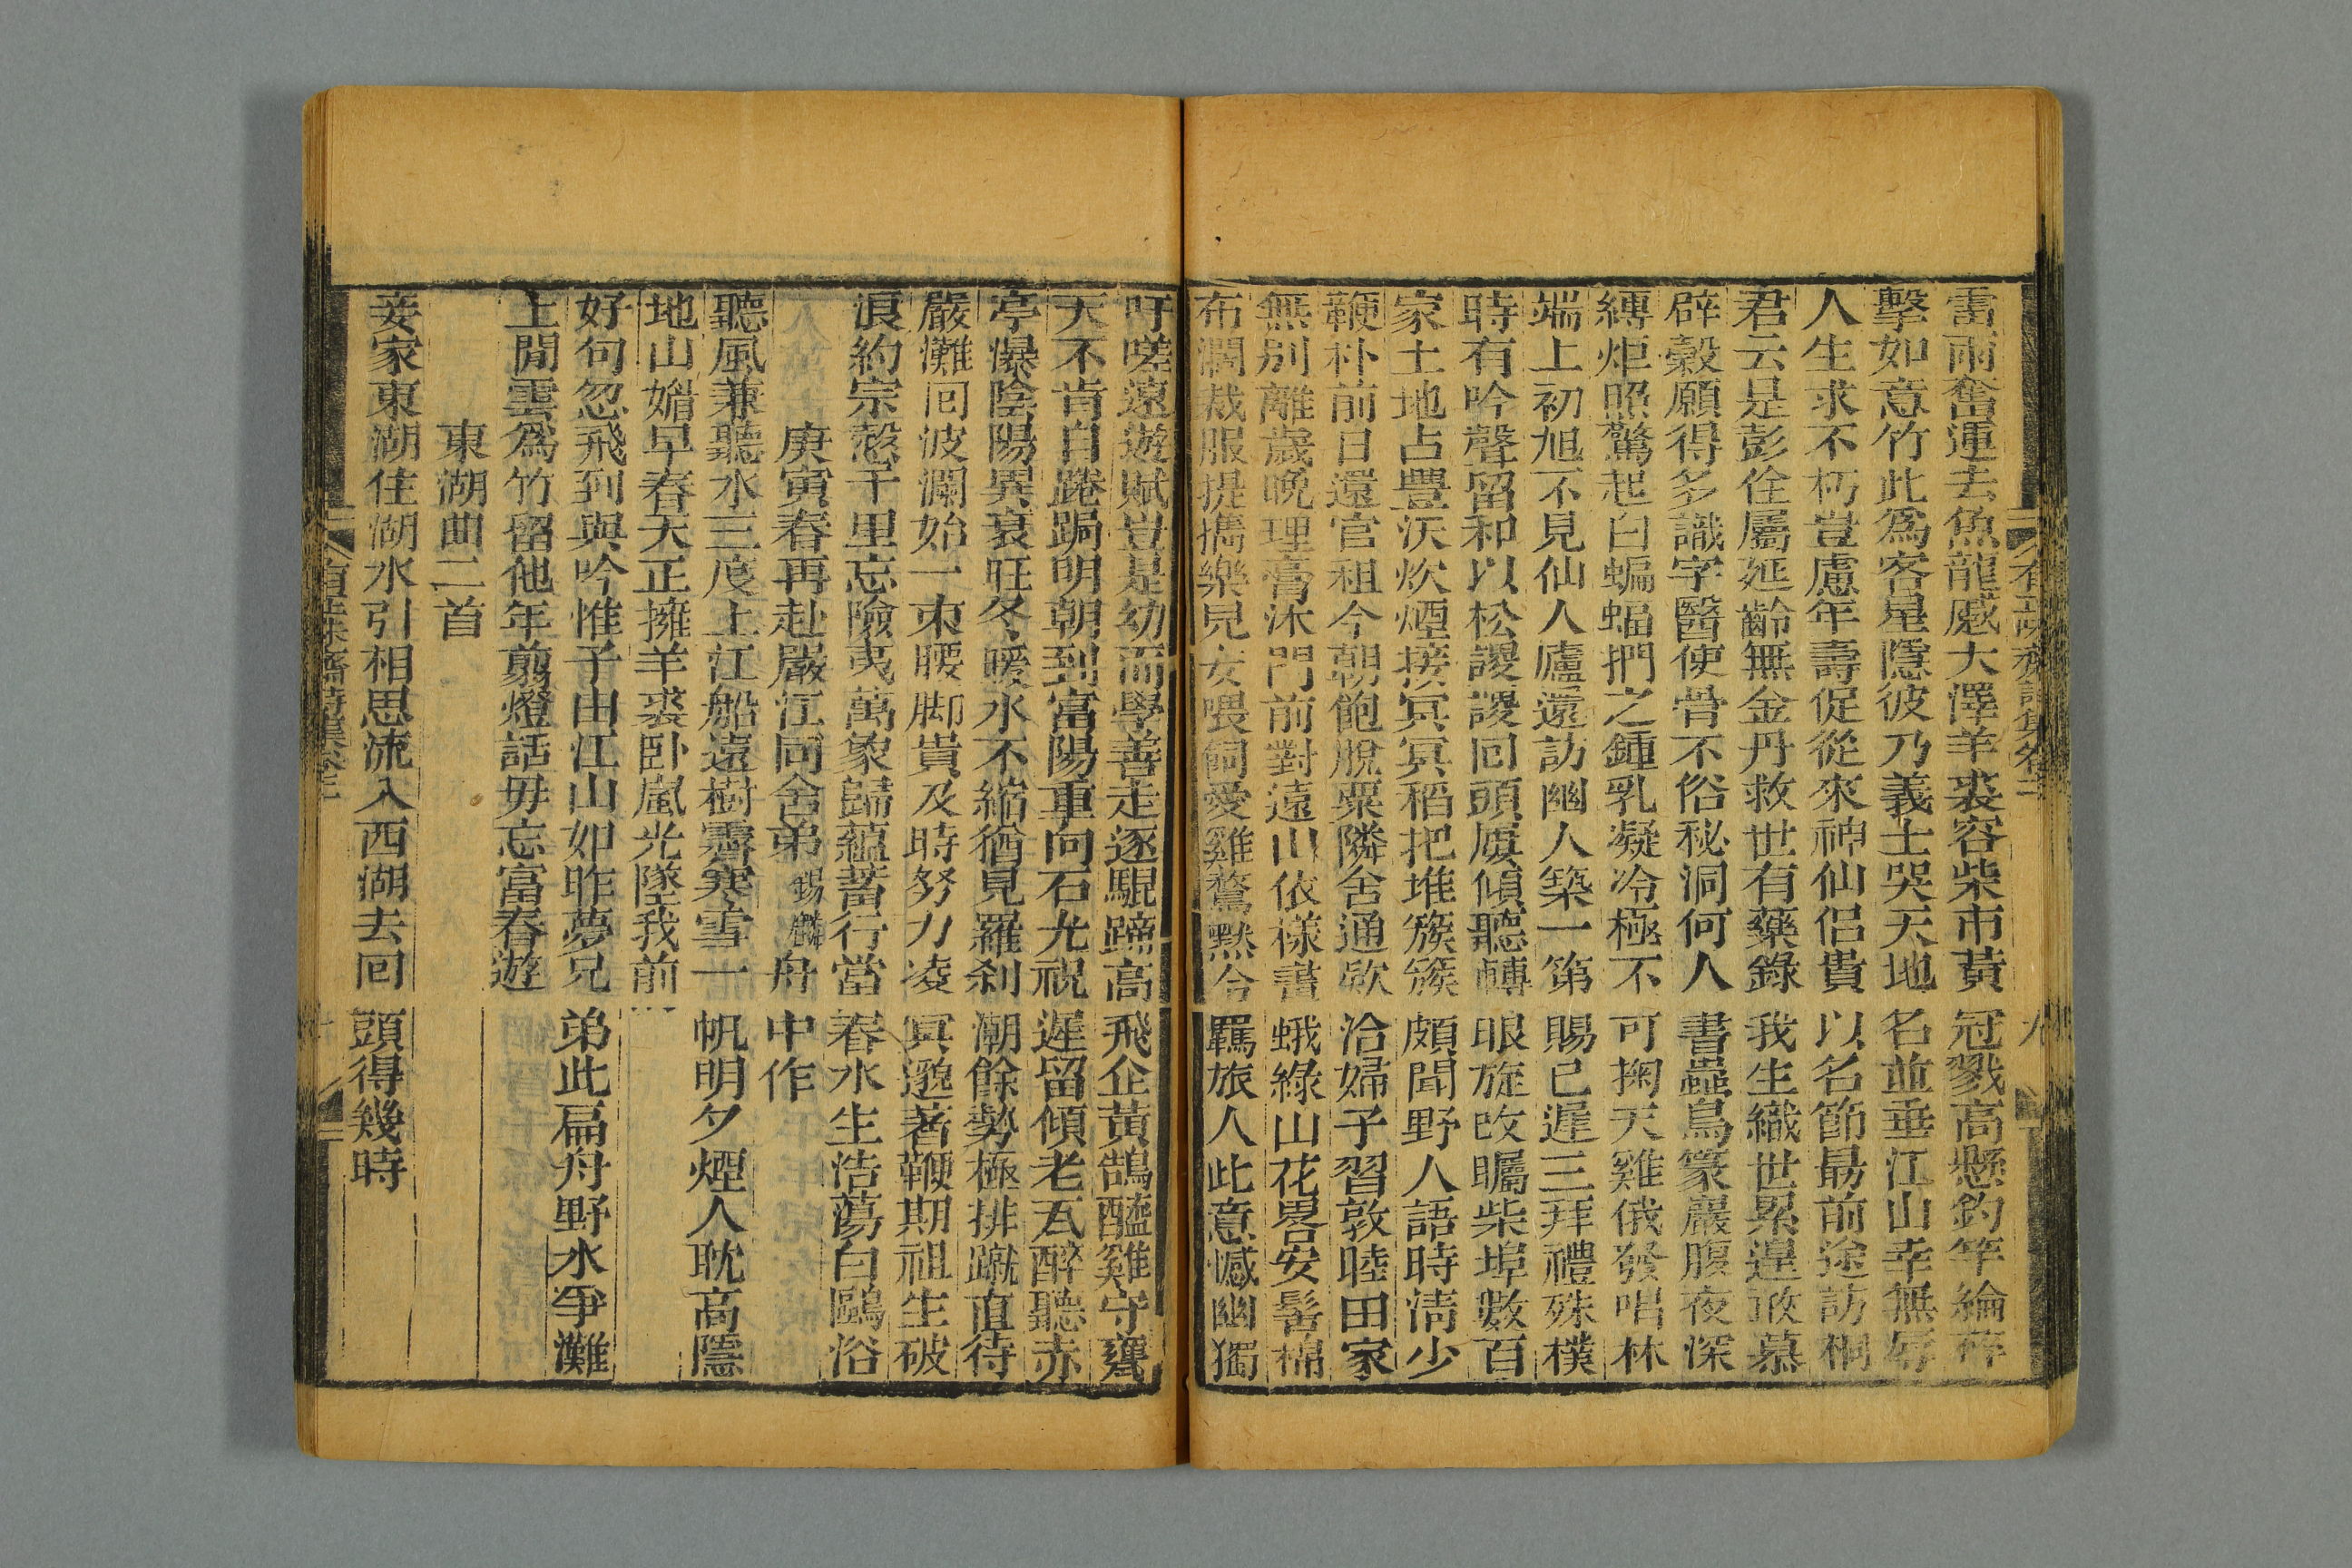 雷雨奮運去魚龍蹙大澤羊裘容柴市黃冠戮高懸釣竿綸
擊如意竹此為客星隱彼乃義士哭天地名並垂江山幸無辱
人生求不朽豈慮年壽促從來神仙侶貴以名節最前途訪桐
君云是彭佺屬延齡無金丹救世有藥錄我生織世累遑敢慕
辟穀願得多識字醫使骨不俗秘洞何人書蟲鳥篆巖腹夜深
縛炬照驚起白蝙蝠捫之鍾乳凝冷極不可掬天雞俄發唱林
端上初旭不見仙人廬還訪幽人築一第賜已遲三拜禮殊樸
時有吟聲留和以松謖謖回頭屢傾聽轉眼旋改矚柴埠數百
家土地占豐沃炊煙接冥冥稻把堆簇簇頗聞野人語時清少
鞭朴前日還官租今朝飽脫粟隣舍通歡洽婦子習敦睦田家
無別離歲晚理膏沐門前對遠山依樣畫蛾綠山花畧安髻棉
布濶裁服提攜樂兒女喂飼愛雞鶩黙令羈旅人此意憾幽獨
吁嗟遠遊賦豈是幼而學善走逐騉蹄高飛企黃鵠醯雞守甕
天不肯自踡跼明朝到富陽重向石尤祝遲留傾老瓦醉聽赤
亭瀑陰陽異衰旺冬暖水不縮猶見羅剎潮餘勢極排蹴直待
嚴灘回波瀾始一束腰脚貴及時努力凌冥邈著鞭期祖生破
浪約宗慤千里忘險夷萬象歸蘊蓄行當春水生浩蕩白鷗俗
庚寅春再赴嚴江同舍弟錫麟舟中作
聽風兼聽水三度上江船遠樹霽寒雪一帆明夕煙人耽高隱
地山媚早春天正擁羊裘卧嵐光墜我前
好句忽飛到與吟惟子由江山如昨夢兄弟此扁舟野水爭灘
上閒雲為竹留他年翦燈話毋忘富春遊
東湖曲二首
妾家東湖住湖水引相思流入西湖去回頭得幾時